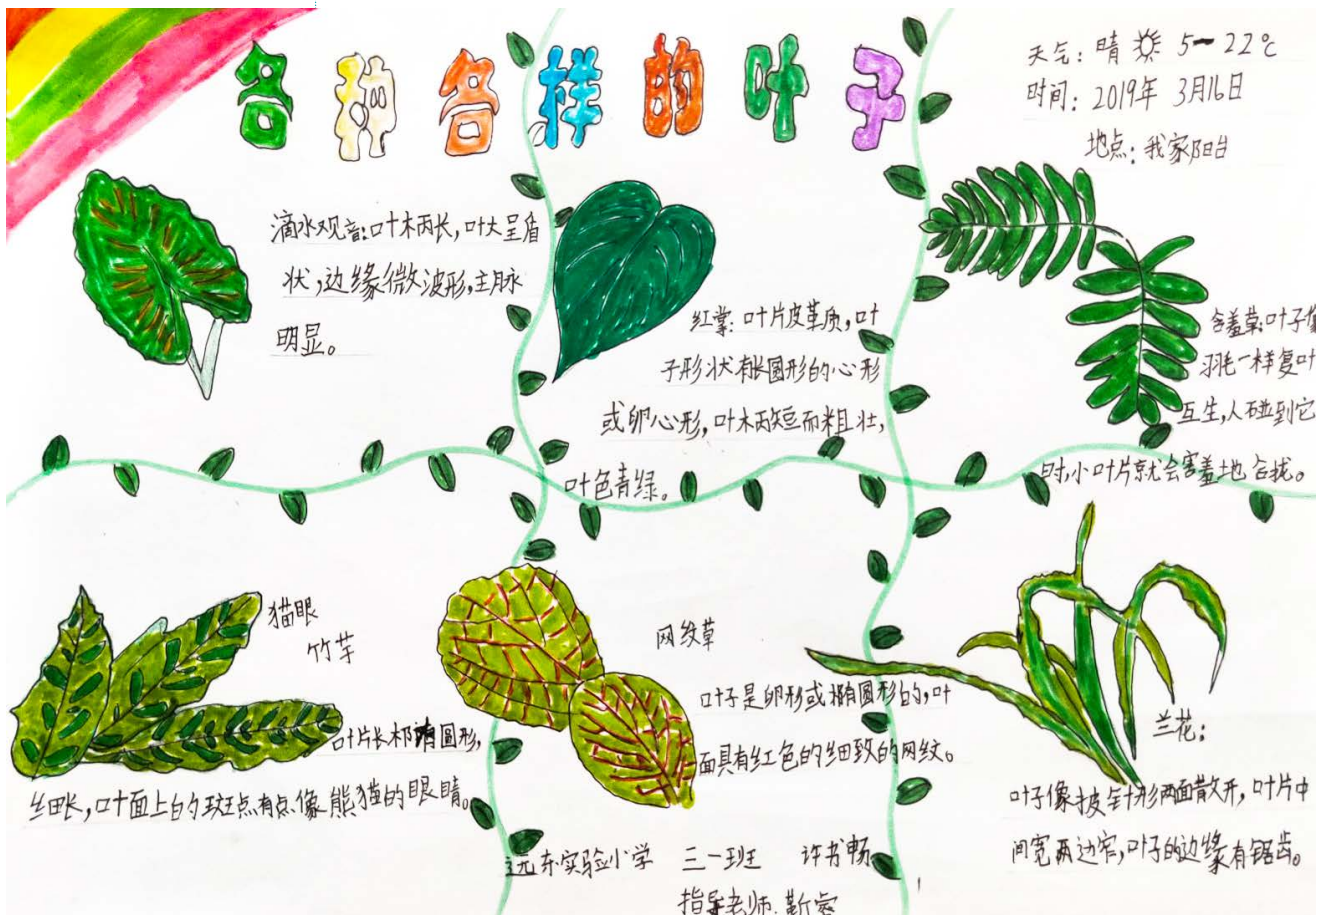 各种各样的叶子
天气：晴 5~22℃
时间：2019年 3月16日
地点：我家阳台
滴水观音：叶柄长，叶大呈盾
状，边缘微波形，主脉
明显。
红掌：叶片皮革质，叶
子形状有长圆形的心形
或卵心形，叶柄短而粗壮，
叶色青绿。
含羞草：叶子像
羽毛一样复叶
互生，人碰到它
时，小叶片就会害羞地合拢。
猫眼
竹芋
叶片长椭圆形，
细长，叶面上的斑点有点像熊猫的眼睛。
网纹草
叶子是卵形或椭圆形的，叶
面具有红色的细致的网纹。
兰花：
叶子像披针形两面散开，叶片中
间宽两边窄，叶子的边缘有锯齿。
远东实验小学 三一班 许书畅
指导老师：靳